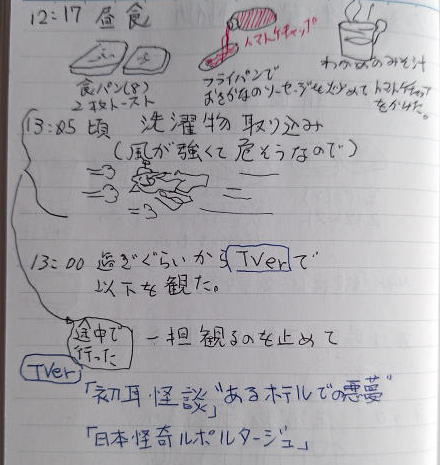 12:17 昼食
トマトケチャップ
食パン(8)
2枚トースト
フライパンで
おさかなのソーセージを炒めて トマトケチャップ
をかけた。
わかめのみそ汁
13:05頃 洗濯物取り込み
(風が強くて危そうなので)
13:00 過ぎぐらいからTVerで
以下を観た。
途中で
行った
一担観るのを止めて
TVer
「初耳怪談」"あるホテルでの悪夢"
「日本怪奇ルポルタージュ」